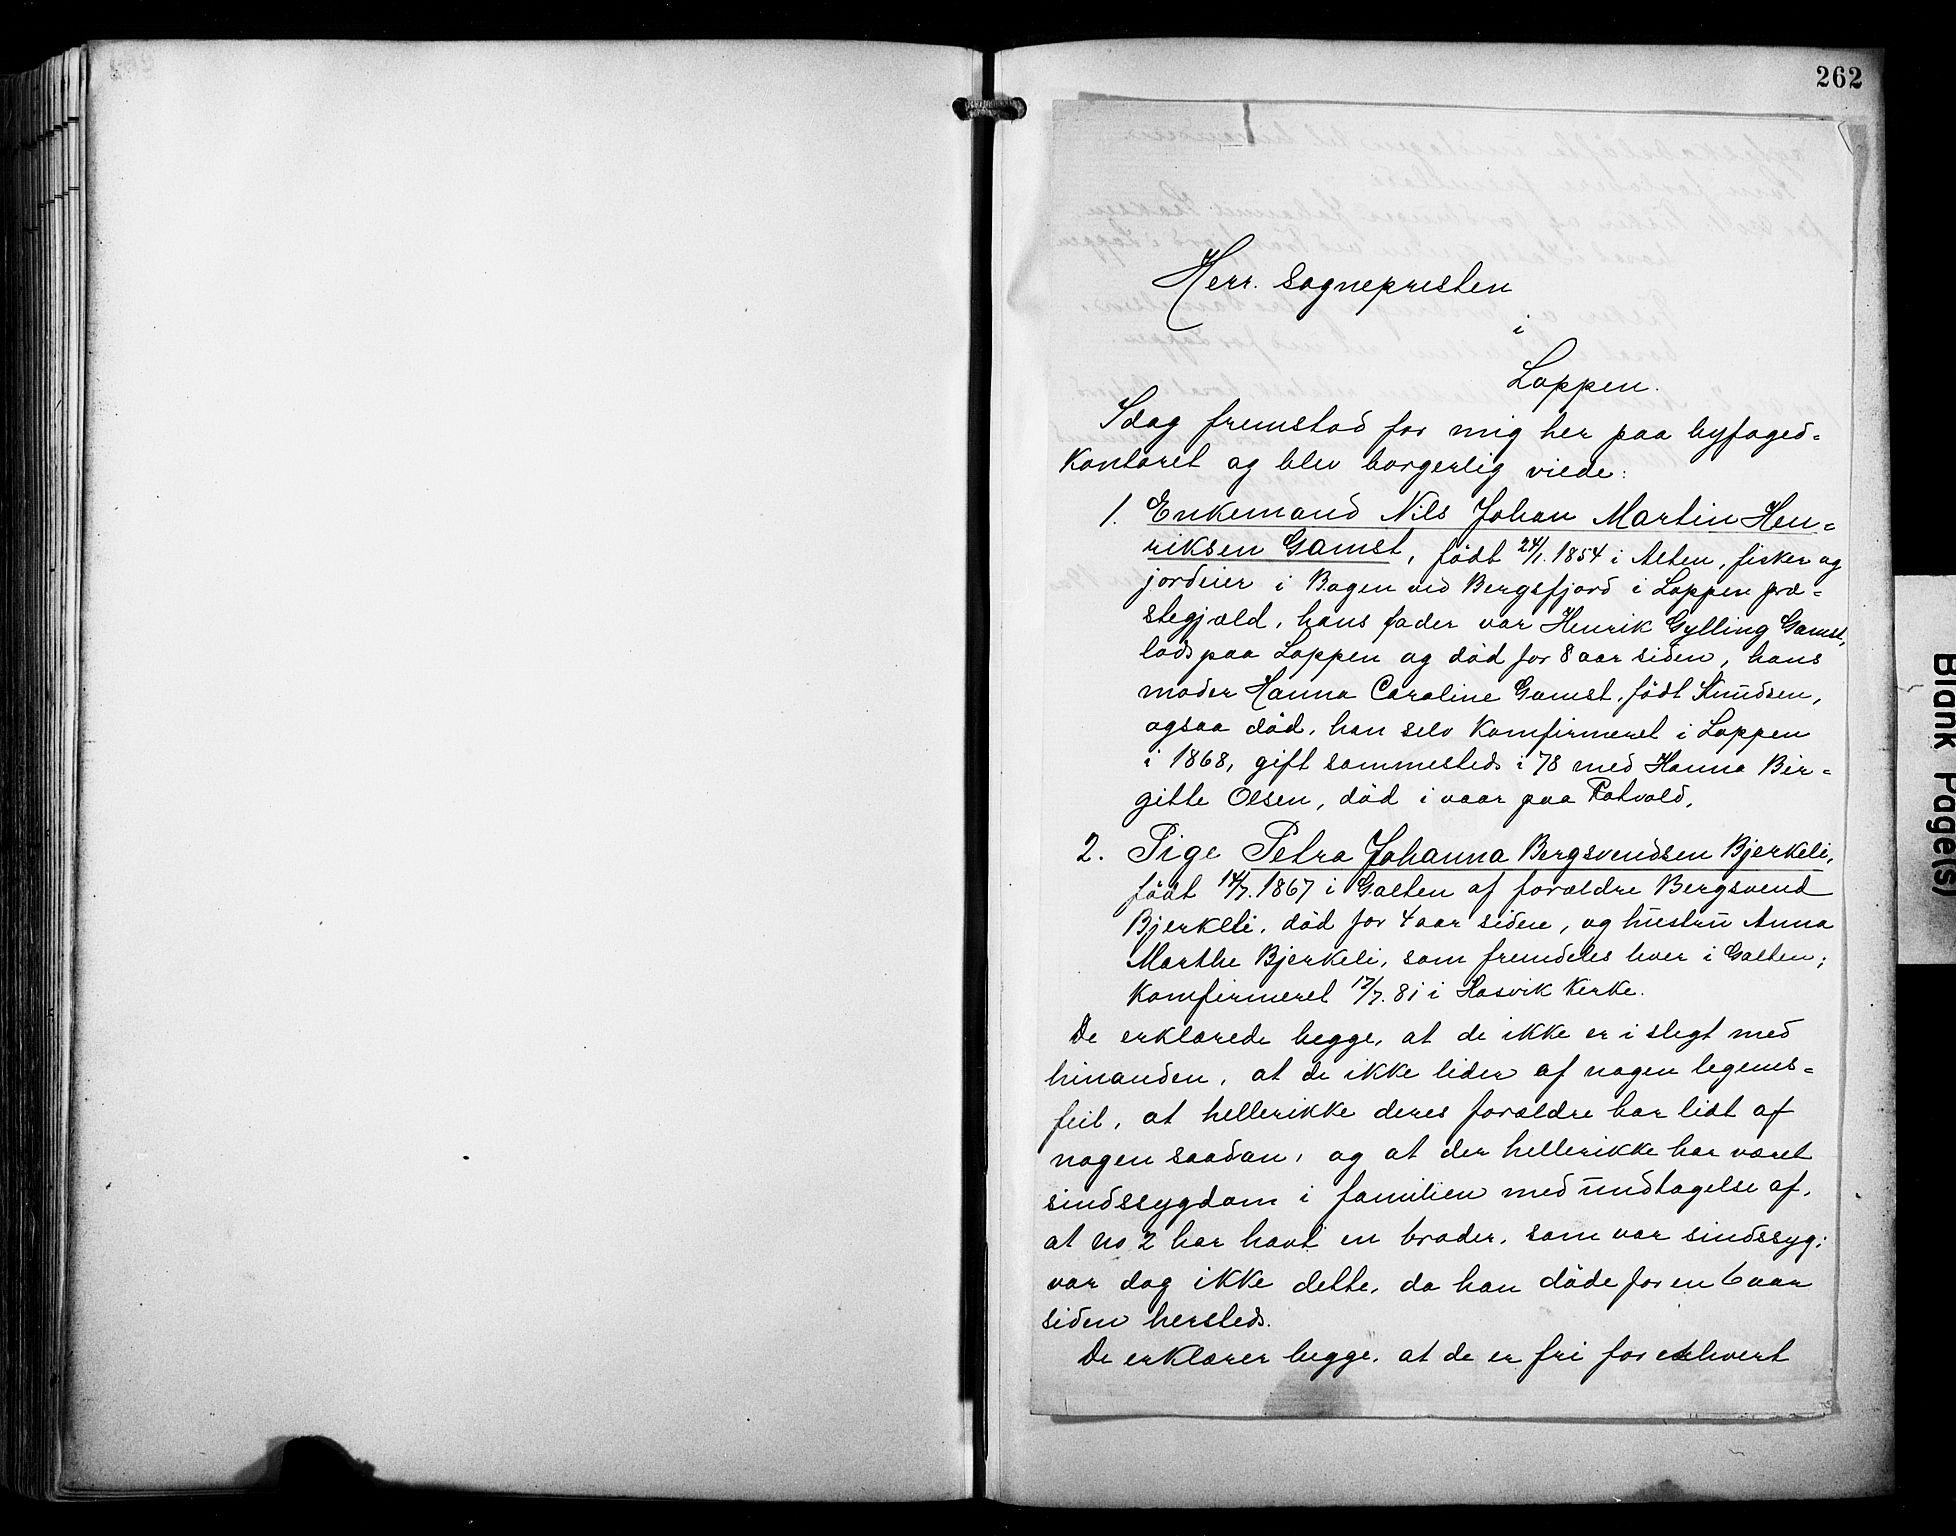 262
Herr. Sognepresten
i
Loppen.
Idag fremstod for mig her paa byfoged-
kontoret og blev borgerlig viede:
1. Enkemand Nils Johan Martin Hen-
riksen Gamst, født 24/1. 1854 i Alten, fisker og
jordeier i Bogen ved Bergsfjord i Loppen præ-
stegjæld, hans fader var Henrik Gylling Gamst,
lods paa Loppen og død for 8 aar siden, hans
moder Hanna Caroline Gamst, født Knudsen,
ogsaa død, han selv komfirmeret i Loppen
i 1868, gift sammesteds i 78 med Hanna Bir-
gitte Olsen, død i vaar paa Rotvold.
2. Pige Petra Johanna Bergsvendsen Bjerkeli,
født 14/7. 1867 i Galten af forældre Bergsvend
Bjerkeli, død for 4 aar siden, og hustru Anna
Marthe Bjerkeli, som fremdeles lever i Galten;
komfirmeret 17/7. 81 i Hasvik kirke.
De erklærede begge, at de ikke er i slegt med
hinanden, at de ikke lider af nogen legems-
feil, at hellerikke deres forældre har lidt af
nogen saadan, og at der hellerikke har været
sindssygdom i familien med undtagelse af,
at no 2 har havt en broder, som var sindssyg;
var dog ikke dette, da han døde for en 6 aar
siden hersteds.
De erklærer begge, at de er fri for ethvert
Blank Page(s)